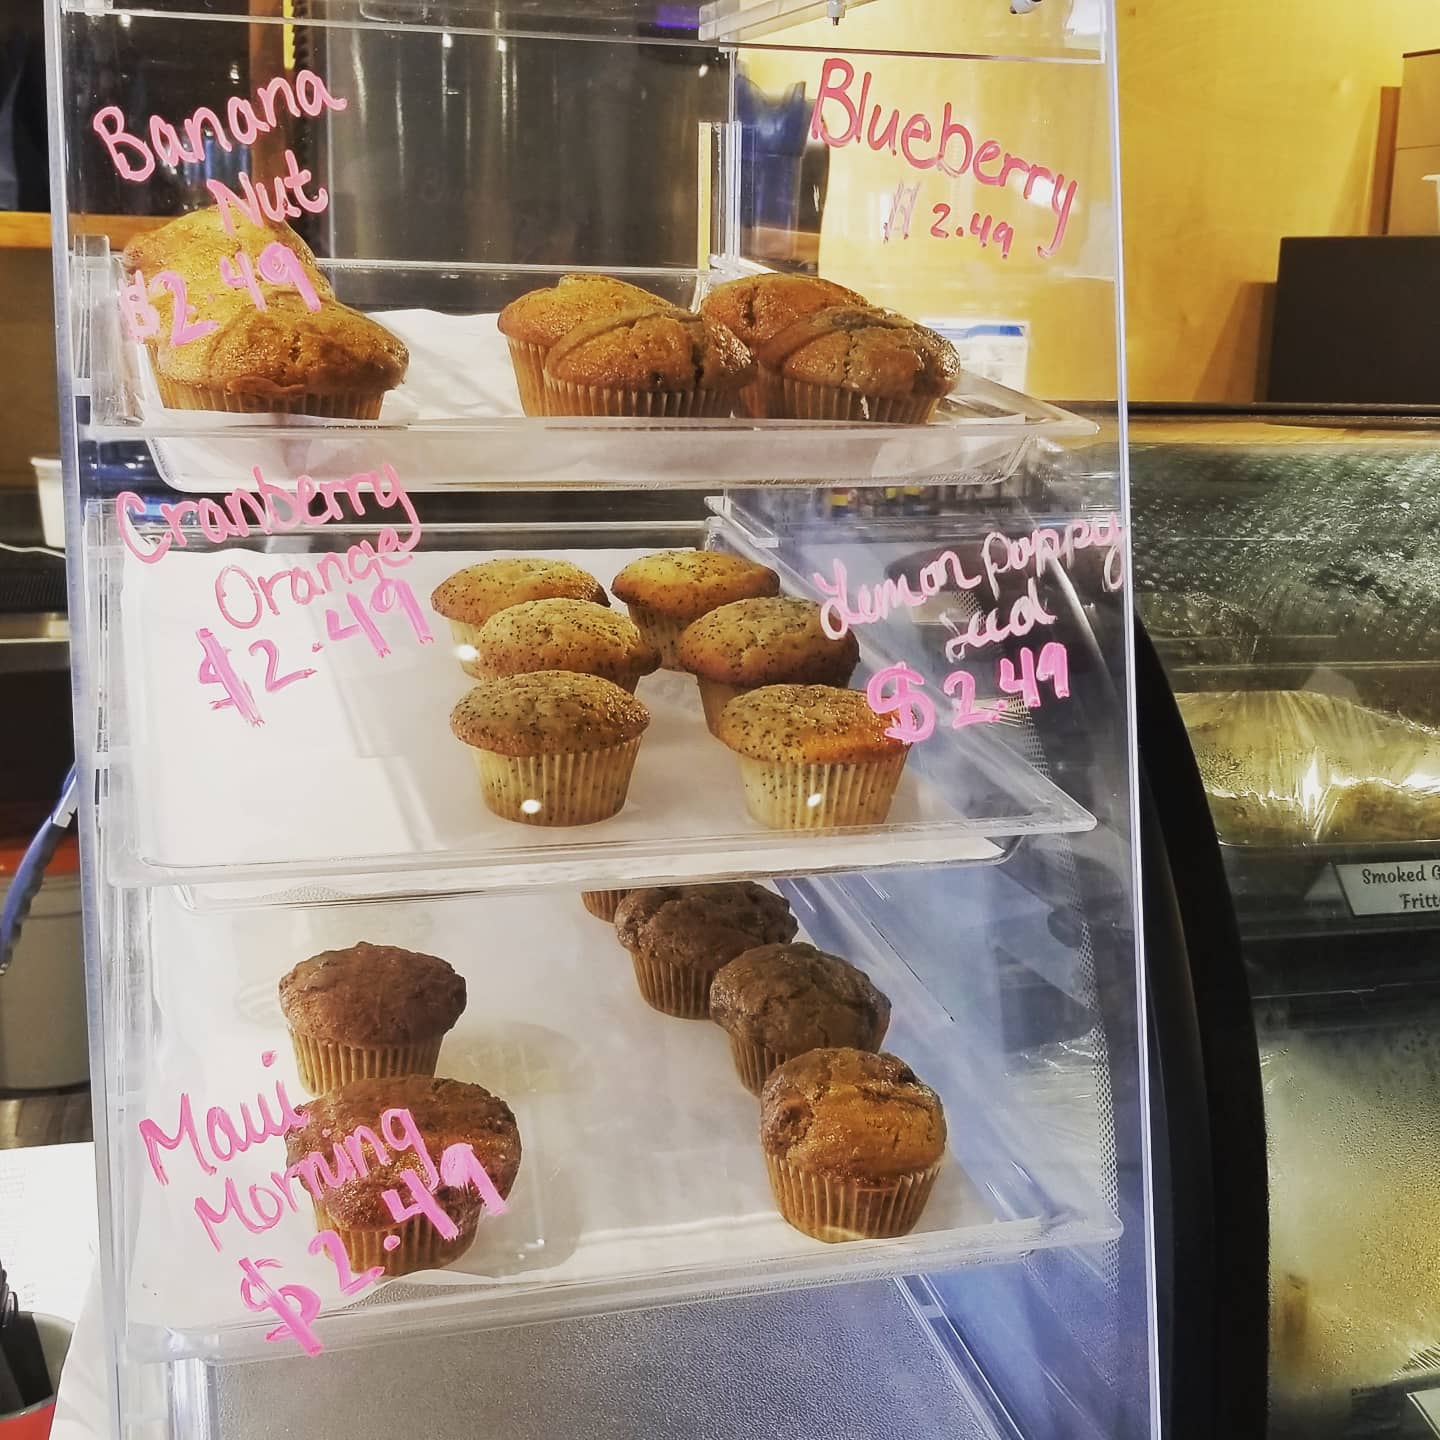 Banana
Nut
$2.49
Blueberry
$2.49
Cranberry
Orange
$2.49
Lemon poppy
seed
$2.49
Maui
Morning
$2.49
Smoked